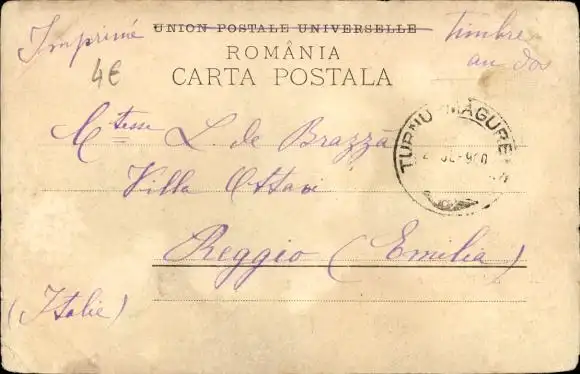 Imprimé
UNION POSTALE UNIVERSELLE
timbre
au dos
ROMÂNIA
4€
CARTA POSTALA
Ctesse L. de Brazzà
Villa Ottavi
Reggio (Emilia)
(Italie)
TURNU MAGURE